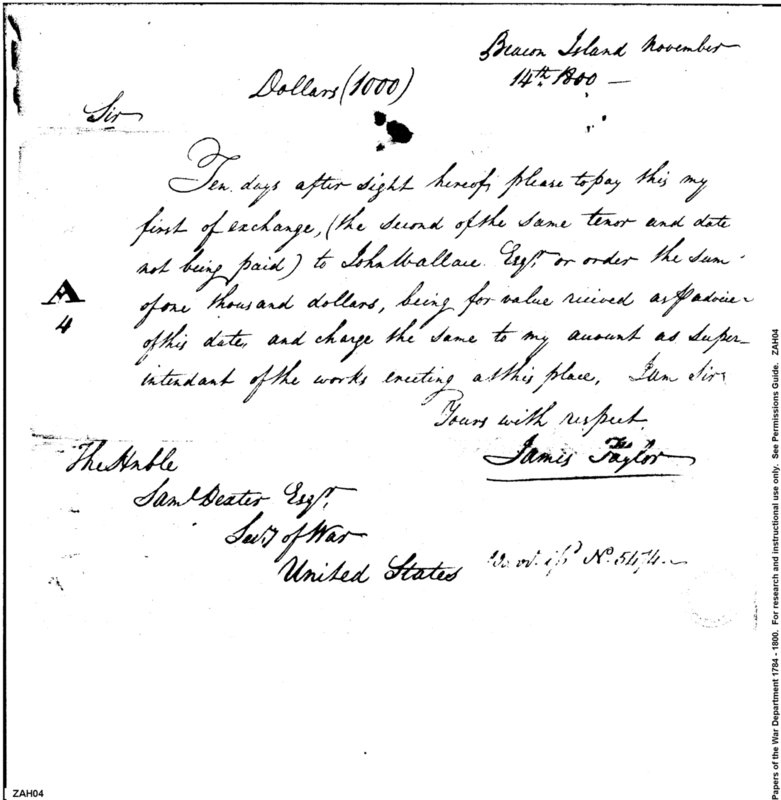 Beacon Island November
14th. 1800 —
Dollars (1000)
Sir
Ten days after sight hereof, please to pay this my
first of exchange, (the second of the same tenor and date
not being paid) to John Wallace Esqr. or order the sum
of one thousand dollars, being for value recived as P advice
of this date, and charge the same to my account as super-
intendant of the works erecting at this place, I am Sir
Yours with respect.
James Taylor
A
4
The Hnble
Saml Dexter Esqr.
Secy of War
United States
No. 5474.
Papers of the War Department 1784 - 1800. For research and instructional use only. See Permissions Guide. ZAH04
ZAH04